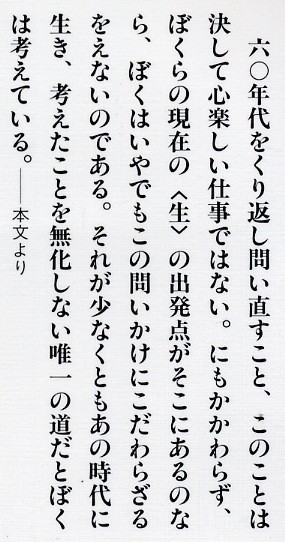 六〇年代をくり返し問い直すこと、このことは
決して心楽しい仕事ではない。にもかかわらず、
ぼくらの現在の〈生〉の出発点がそこにあるのな
ら、ぼくはいやでもこの問いかけにこだわらざる
をえないのである。それが少なくともあの時代に
生き、考えたことを無化しない唯一の道だとぼく
は考えている。――本文より